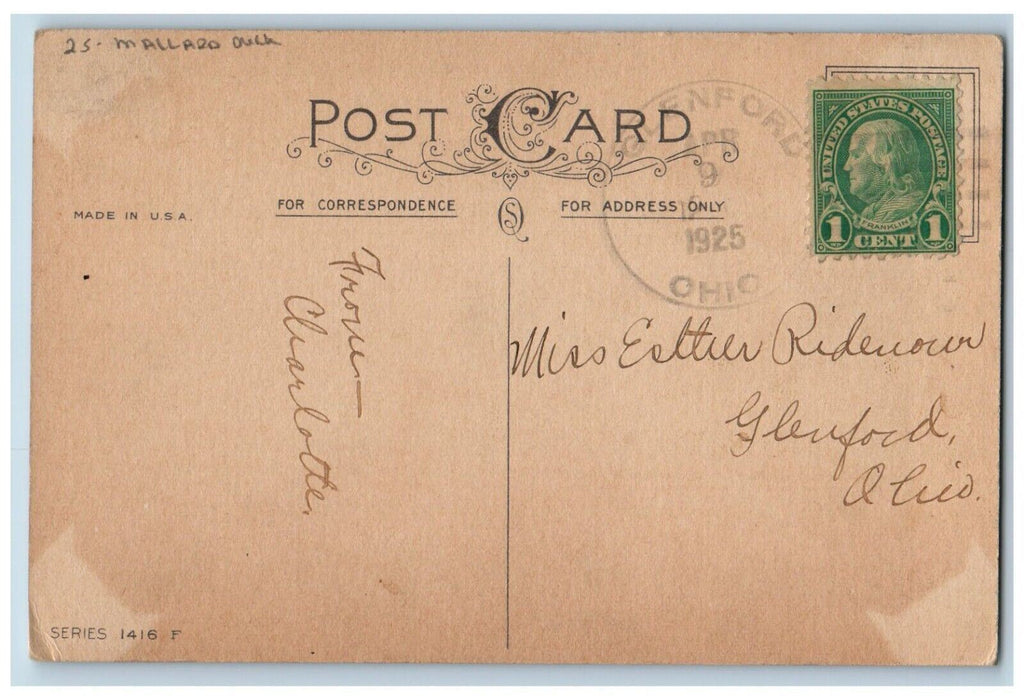 25- MALLARD DUCK
POST CARD
MADE IN U.S.A.
FOR CORRESPONDENCE
FOR ADDRESS ONLY
GLENFORD
APR
9
1925
OHIO
UNITED STATES POSTAGE
FRANKLIN
1 CENT 1
From—
Charlotte.
Miss Esther Ridenour
Glenford,
Ohio.
SERIES 1416 F